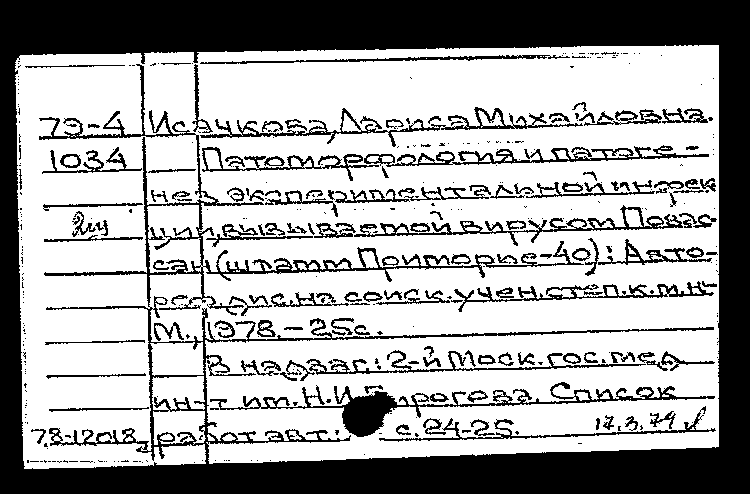 79-4 Исачкова, Лариса Михайловна.
1034 Патоморфология и патоге-
нез экспериментальной инфек
2щ ции, вызываемой вирусом Повас-
сан (штамм Приморье-40): Авто-
реф. дис. на соиск. учен. степ. к.м.н-
М., 1978. - 25с.
В надзаг.: 2-й Моск. гос. мед
ин-т им. Н.И. Пирогова. Список
78-12018 работ авт.: с. 24-25. 17.3.79